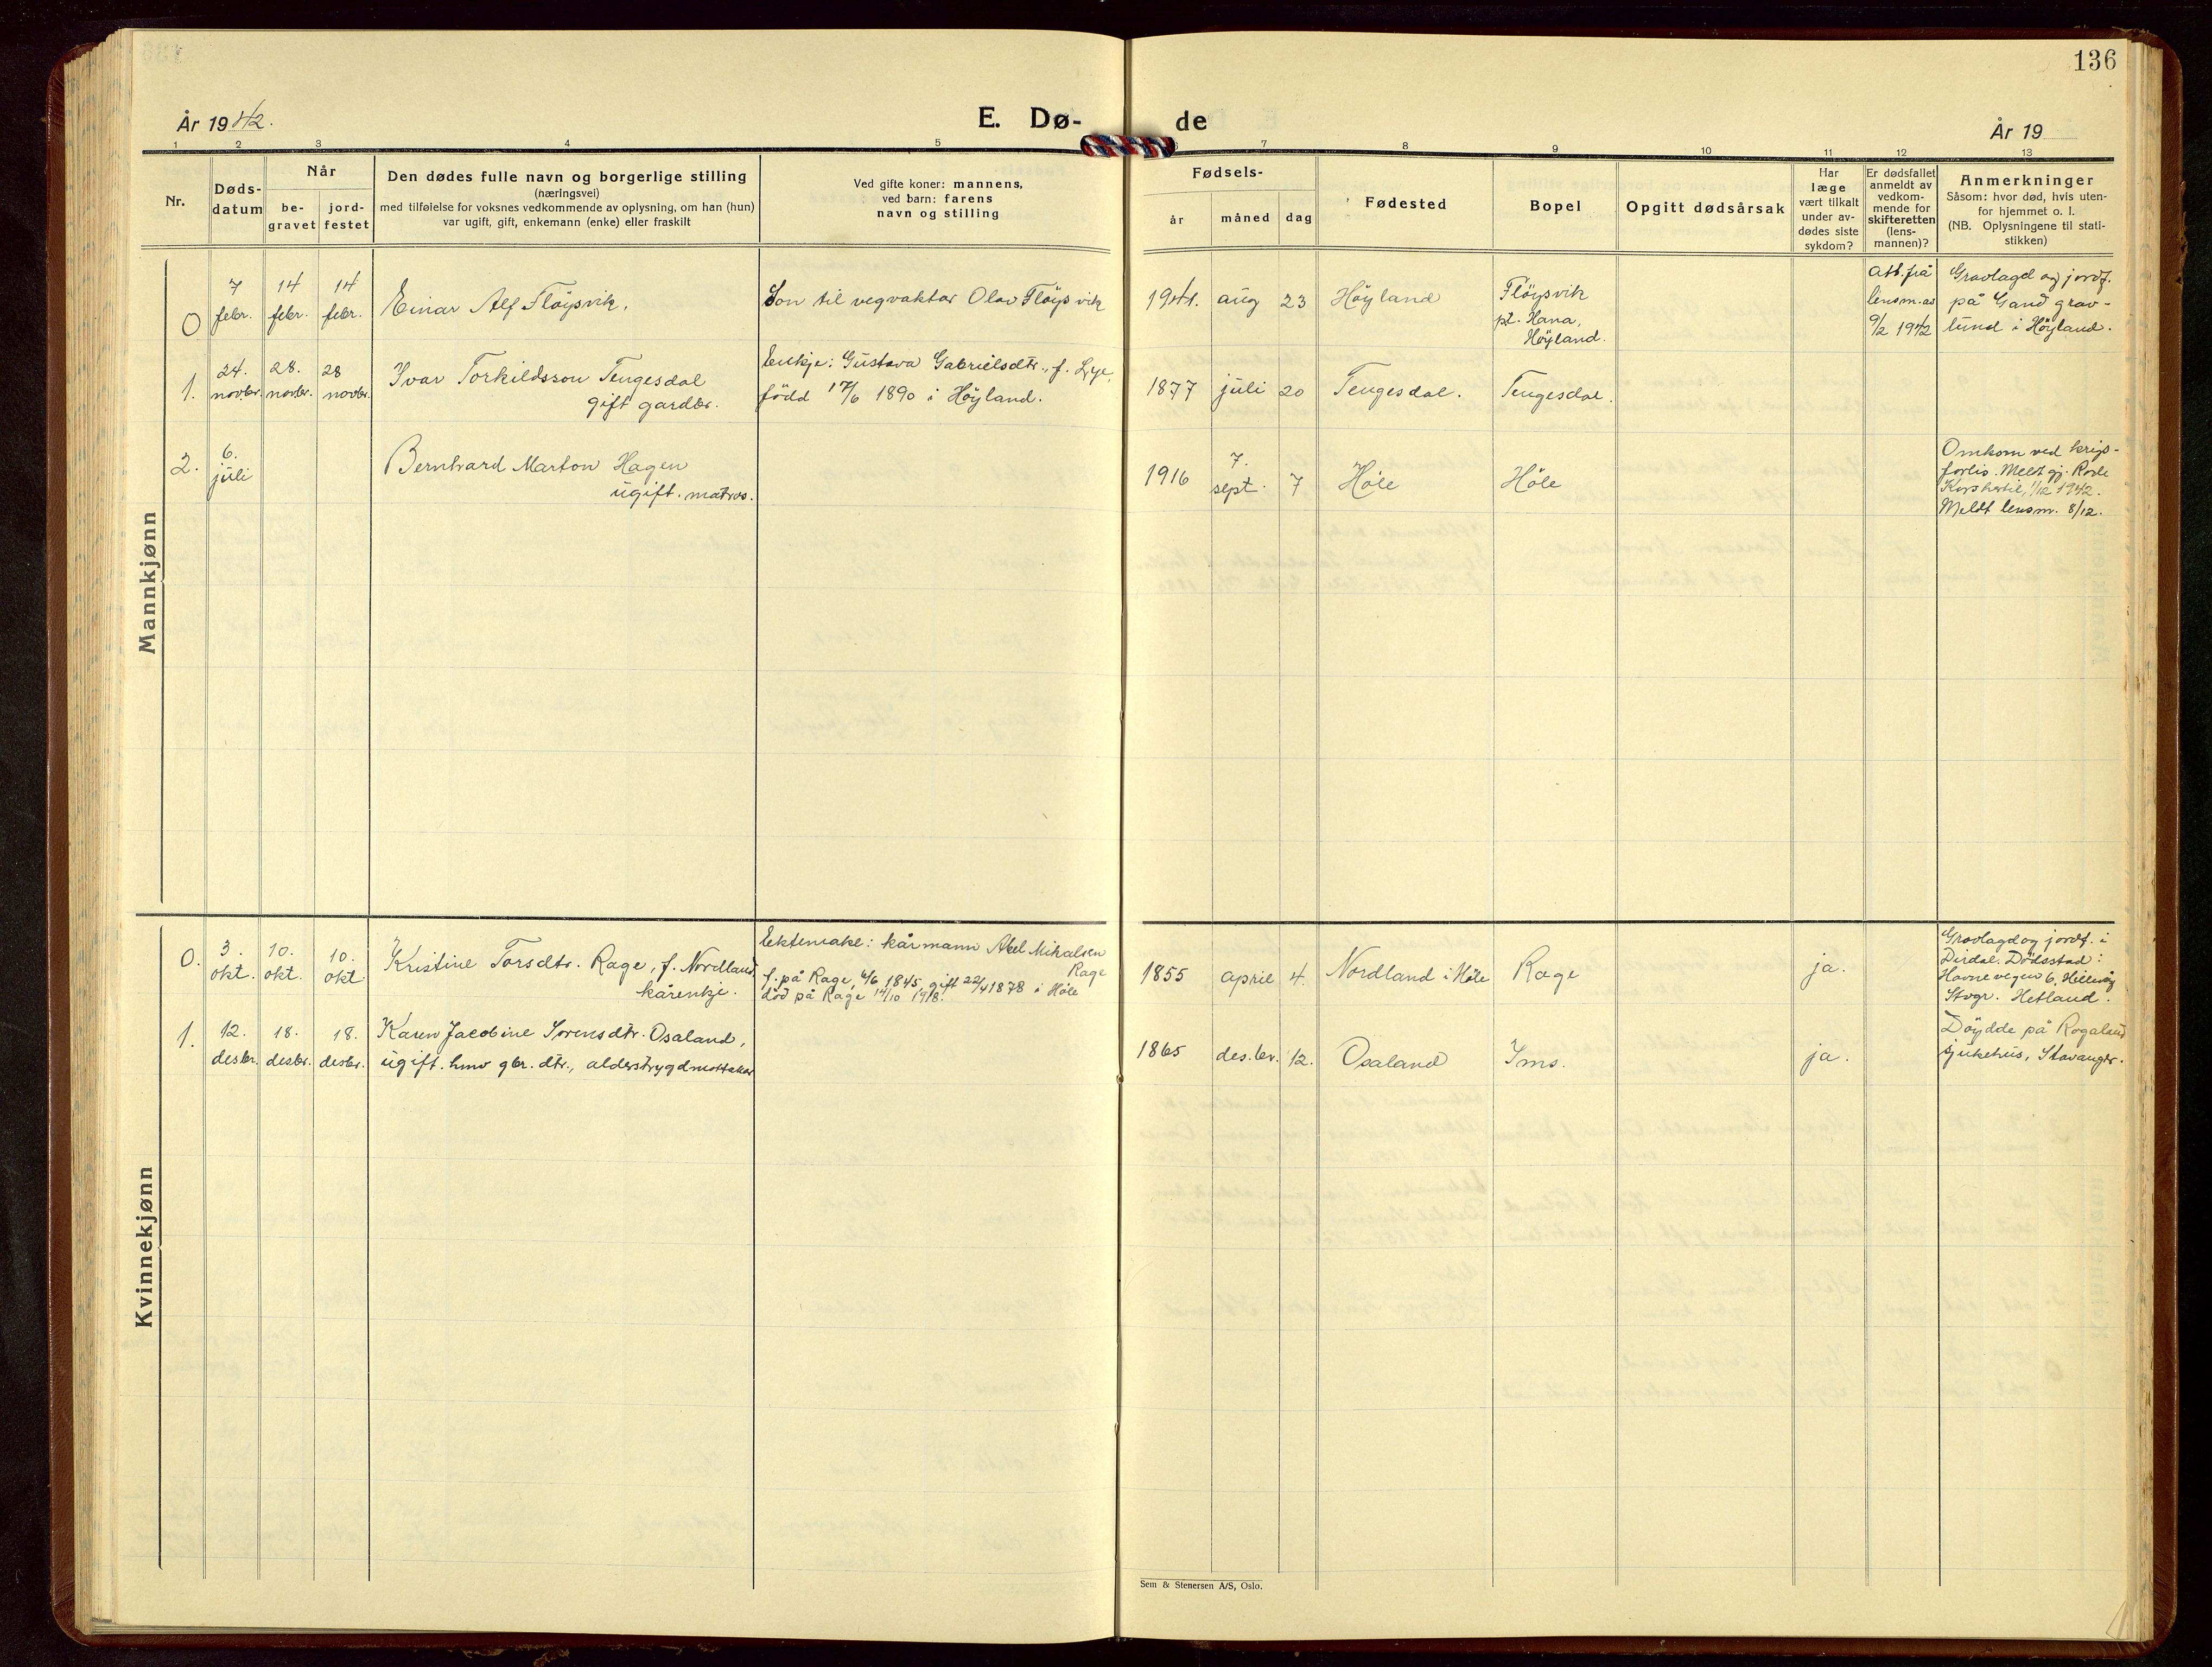 136
År 1942.
E. Dø-
de
År 19
1 2 3 4 5 7 8 9 10 11 12 13
Nr.
Døds-
datum
Når
be-
gravet
jord-
festet
Den dødes fulle navn og borgerlige stilling
(næringsvei)
med tilføielse for voksnes vedkommende av oplysning, om han (hun)
var ugift, gift, enkemann (enke) eller fraskilt
Ved gifte koner: mannens,
ved barn: farens
navn og stilling
Fødsels-
år måned dag
Fødested
Bopel
Opgitt dødsårsak
Har
læge
vært tilkalt
under av-
dødes siste
sykdom?
Er dødsfallet
anmeldt av
vedkom-
mende for
skifteretten
(lens-
mannen)?
Anmerkninger
Såsom: hvor død, hvis uten-
for hjemmet o. l.
(NB. Oplysningene til stati-
stikken)
Mannkjønn
0
7
febr.
14
febr.
14
febr.
Einar Alf Fløysvik.
Son til vegvaktar Olav Fløysvik
1941. aug 23
Høyland
Fløysvik
pt. Hana,
Høyland.
Att. frå
lensm. av
9/2 1942
Gravlagd og jordf.
på Gand grav-
lund i Høyland.
1.
24.
novbr.
28.
novbr.
28
novbr.
Ivar Torkildsson Tengesdal
gift gardbr.
Enkje: Gustava Gabrielsdtr., f. Lye,
fødd 17/6 1890 i Høyland.
1877 juli 20
Tengesdal.
Tengesdal.
2.
6.
juli
Bernhard Marton Hagen
ugift. matros.
1916
7.
sept. 7
Høle
Høle
Omkom ved krigs-
forlis. Meldt gj. Røde
1/12 1942.
Meldt lensm. 8/12.
Kvinnekjønn
0.
3.
okt.
10.
okt.
10.
okt.
Kristine Torsdtr. Rage, f. Nordland
kårenkje.
Ektemake: kårmann Abel Mikalsen
Rage
f. på Rage, 4/6 1845, gift 22/4 1878 i Høle
død på Rage 14/10 1918.
1855 april 4.
Nordland i Høle
Rage
ja.
Gravlagd og jordf. i
Dirdal. Dødsstad:
Havnevegen 6, Hillevåg
Stvgr. Hetland.
1.
12.
desbr.
18.
desbr.
18.
desbr.
Karen Jacobine Sørensdtr. Osaland,
ugift. hmv gbr. dtr., alderstrygdmottakar
1865 des.br. 12.
Osaland
Ims.
ja.
Døydde på Rogaland
sjukehus, Stavanger.
Sem & Stenersen A/S, Oslo.